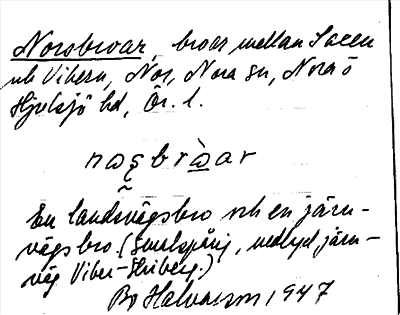 Norsbroar, broar mellan Saeen
och Vibern, Nor, Nora sn, Nora ö
Hjulsjö hd, Ör. l.
En landsvägsbro och en järn-
vägsbro (smalspårig, nedlagd järn-
väg Viber-Striberg.)
Bo Halvarson, 1947